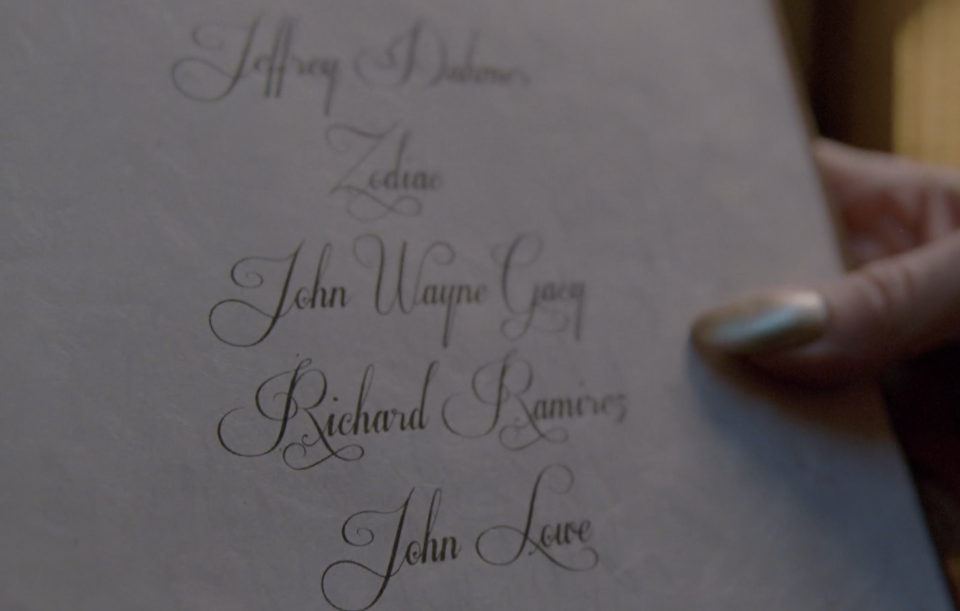 Jeffrey Dahmer
Zodiac
John Wayne Gacy
Richard Ramirez
John Lowe